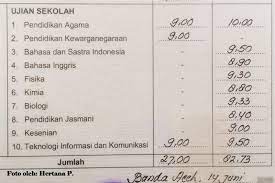 UJIAN SEKOLAH
1 Pendidikan Agama 9,00 10,00
2. Pendidikan Kewarganegaraan 9,00
3 Bahasa dan Sastra Indonesia 9,50
4 Bahasa Inggris 8,90
5. Fisika 9,30
6. Kimia 8,80
7. Biologi 9,33
8. Pendidikan Jasmani 8,40
9. Kesenian 9,00
10. Teknologi Informasi dan Komunikasi 9,00 9,50
Jumlah 27,00 82.73
Foto oleh: Hertana P.
Banda Aceh, 14 Juni